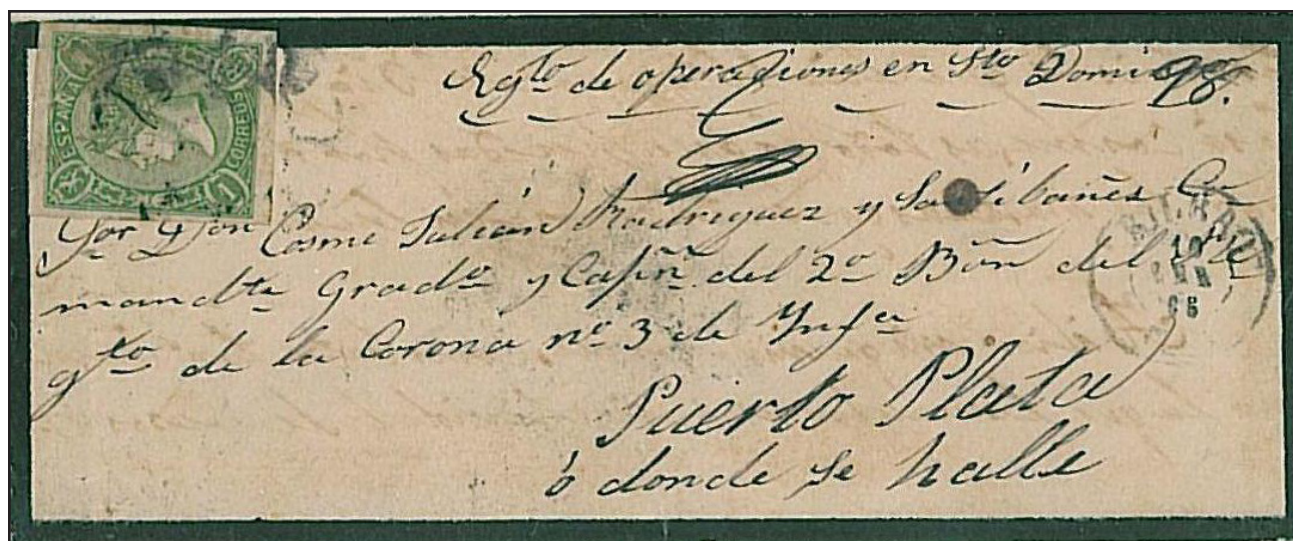 ESPAÑA
CORREOS
1
Egto de operaciones en Sto Domingo.
Sor Don Cosme Julián Rodriguez y Santibañes Co-
mandte GradO y Capn del 2º Bon del Re-
gto de la Corona nº 3 de Ynfa
Puerto Plata
ó donde se halle
BILBAO
10
66